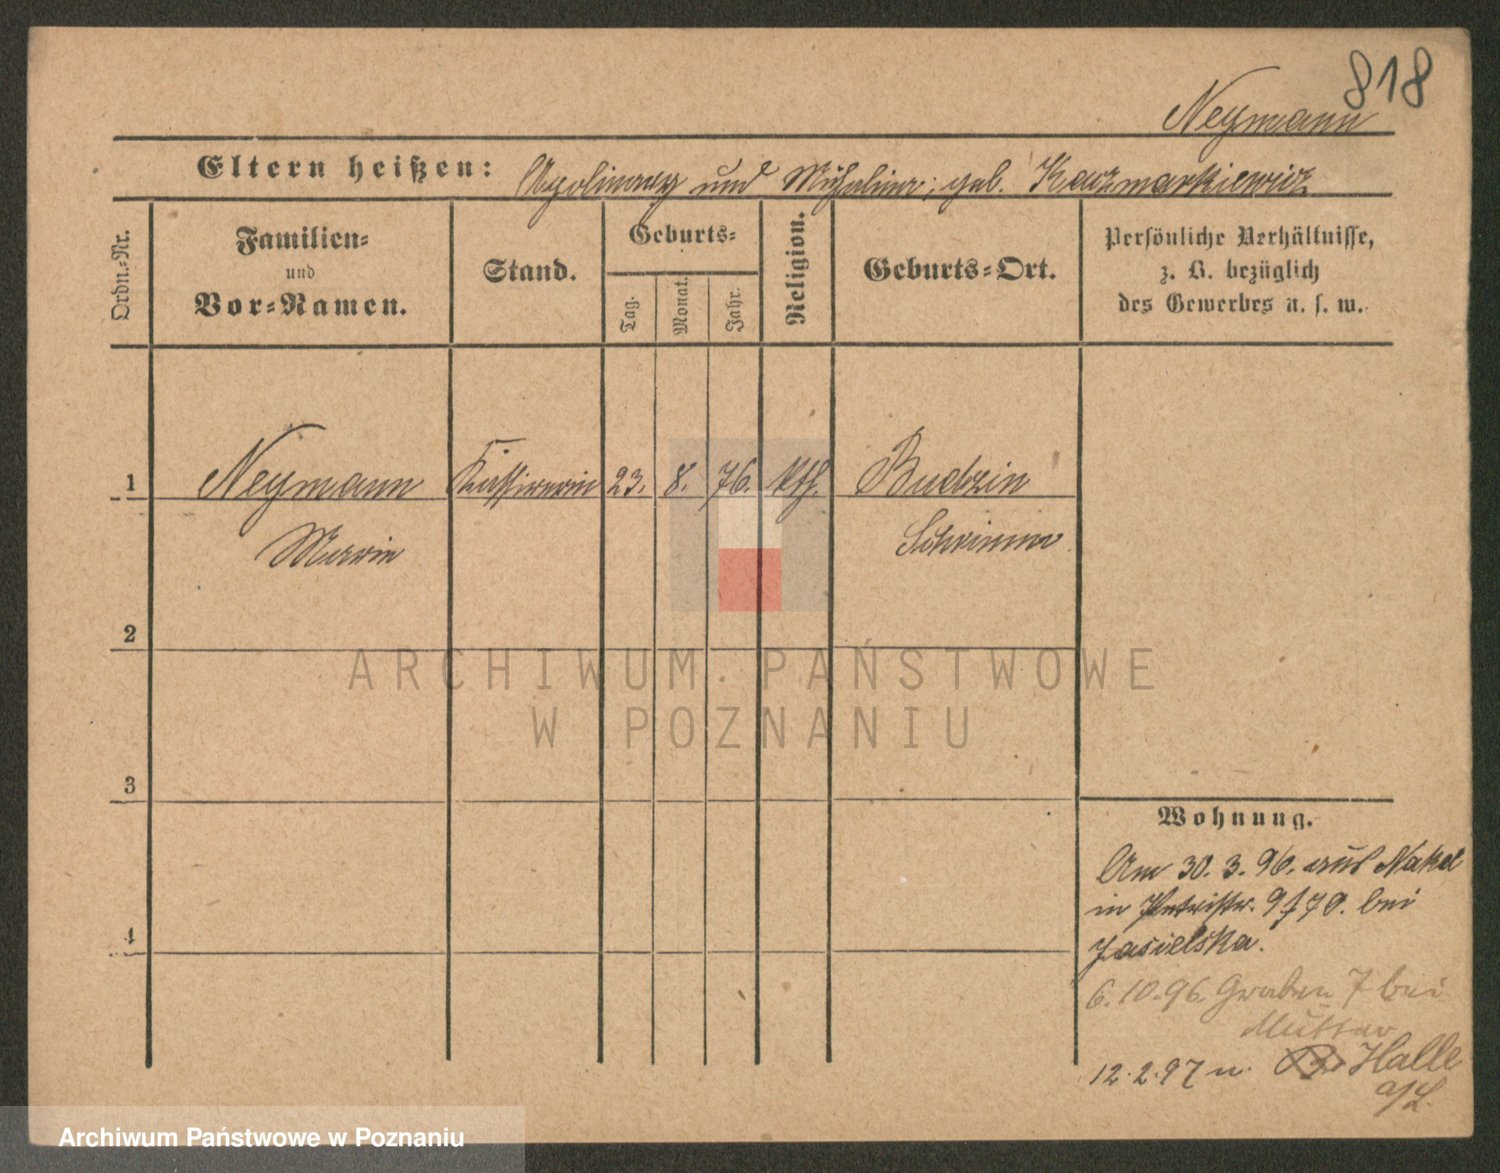 818
Neymann
Eltern heißen: Apolinary und Michalina, geb. Kaczmarkiewicz
Ordn.-Nr.
Familien-
und
Vor-Namen.
Stand.
Geburts-
Tag.
Monat.
Jahr.
Religion.
Geburts-Ort.
Persönliche Verhältnisse,
z. B. bezüglich
des Gewerbes u. s. w.
1 Neymann Kassirerin 23. 8. 76. kth. Budzin
Marie Schrimm
2
3
4
ARCHIWUM PAŃSTWOWE
W POZNANIU
Wohnung.
Am 30. 3. 96. aus Nakel
in 9/70. bei
Jasielska.
6. 10. 96. Graben 7 bei
Mutter
12. 2. 97 n. Halle
a/S.
Archiwum Państwowe w Poznaniu